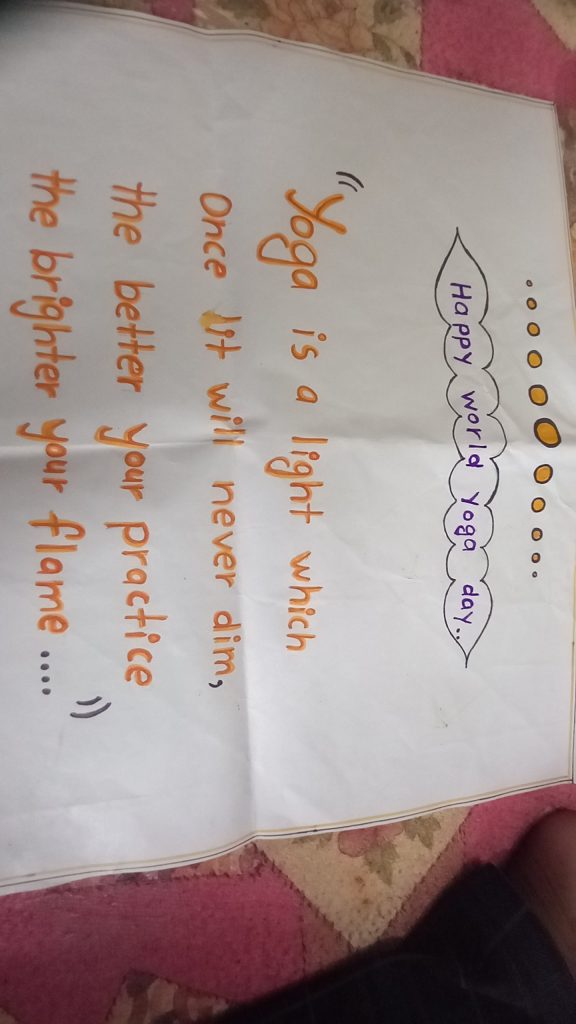 Happy world Yoga day..
"Yoga is a light which
Once lit will never dim,
the better your practice
the brighter your flame ...."